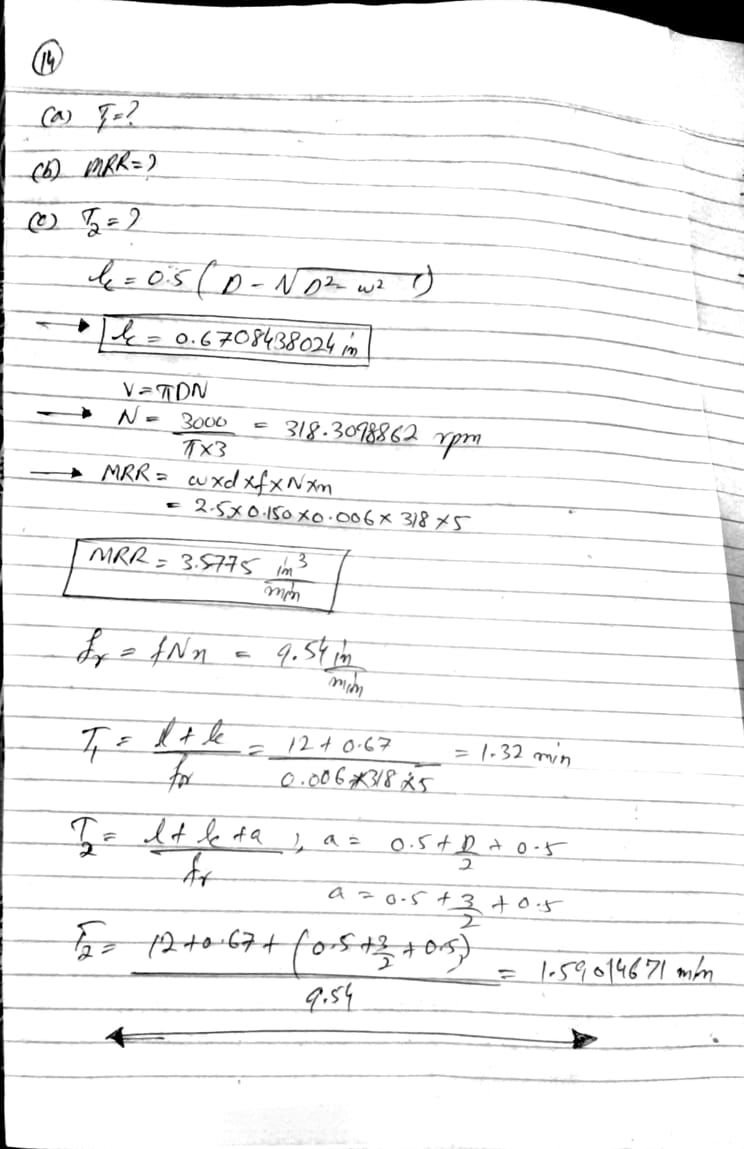 14
(a) T₁=?
(b) MRR=?
(c) T₂=?
lc = 0.5 ( D - √D² - w² )
→ lc = 0.6708438024 in
V = πDN
→ N = 3000 / π×3 = 318.3098862 rpm
→ MRR = w×d×f×N×n
= 2.5×0.150×0.006×318×5
MRR = 3.5775 in³/min
fr = fNn = 9.54 in/min
T₁ = l + lc / fr = 12 + 0.67 / 0.006×318×5 = 1.32 min
T₂ = l + lc + a / fr , a = 0.5 + D/2 + 0.5
a = 0.5 + 3/2 + 0.5
T₂ = 12 + 0.67 + (0.5 + 3/2 + 0.5) / 9.54 = 1.59014671 min